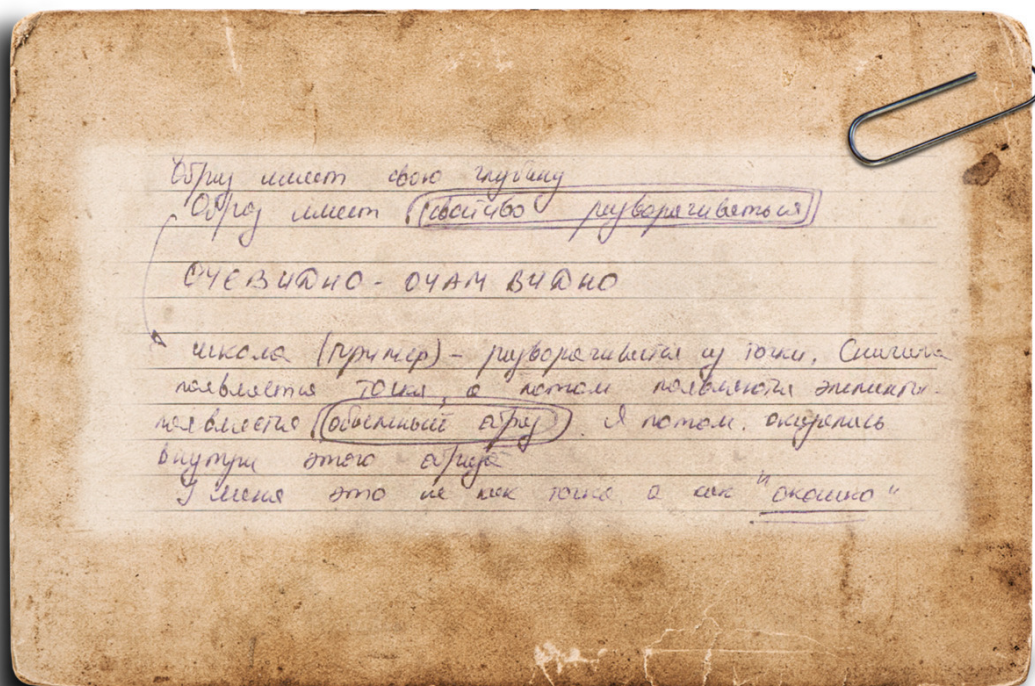 Образ имеет свою глубину
Образ имеет свойство разворачиваться
ОЧЕВИДНО - ОЧАМ ВИДНО
школа (пример) - разворачивается из точки. Сначала
появляется точка, а потом появляются элементы -
появляется объемный образ. Я потом. оказалась
внутри этого образа
У меня это не как точка а как "окошко"